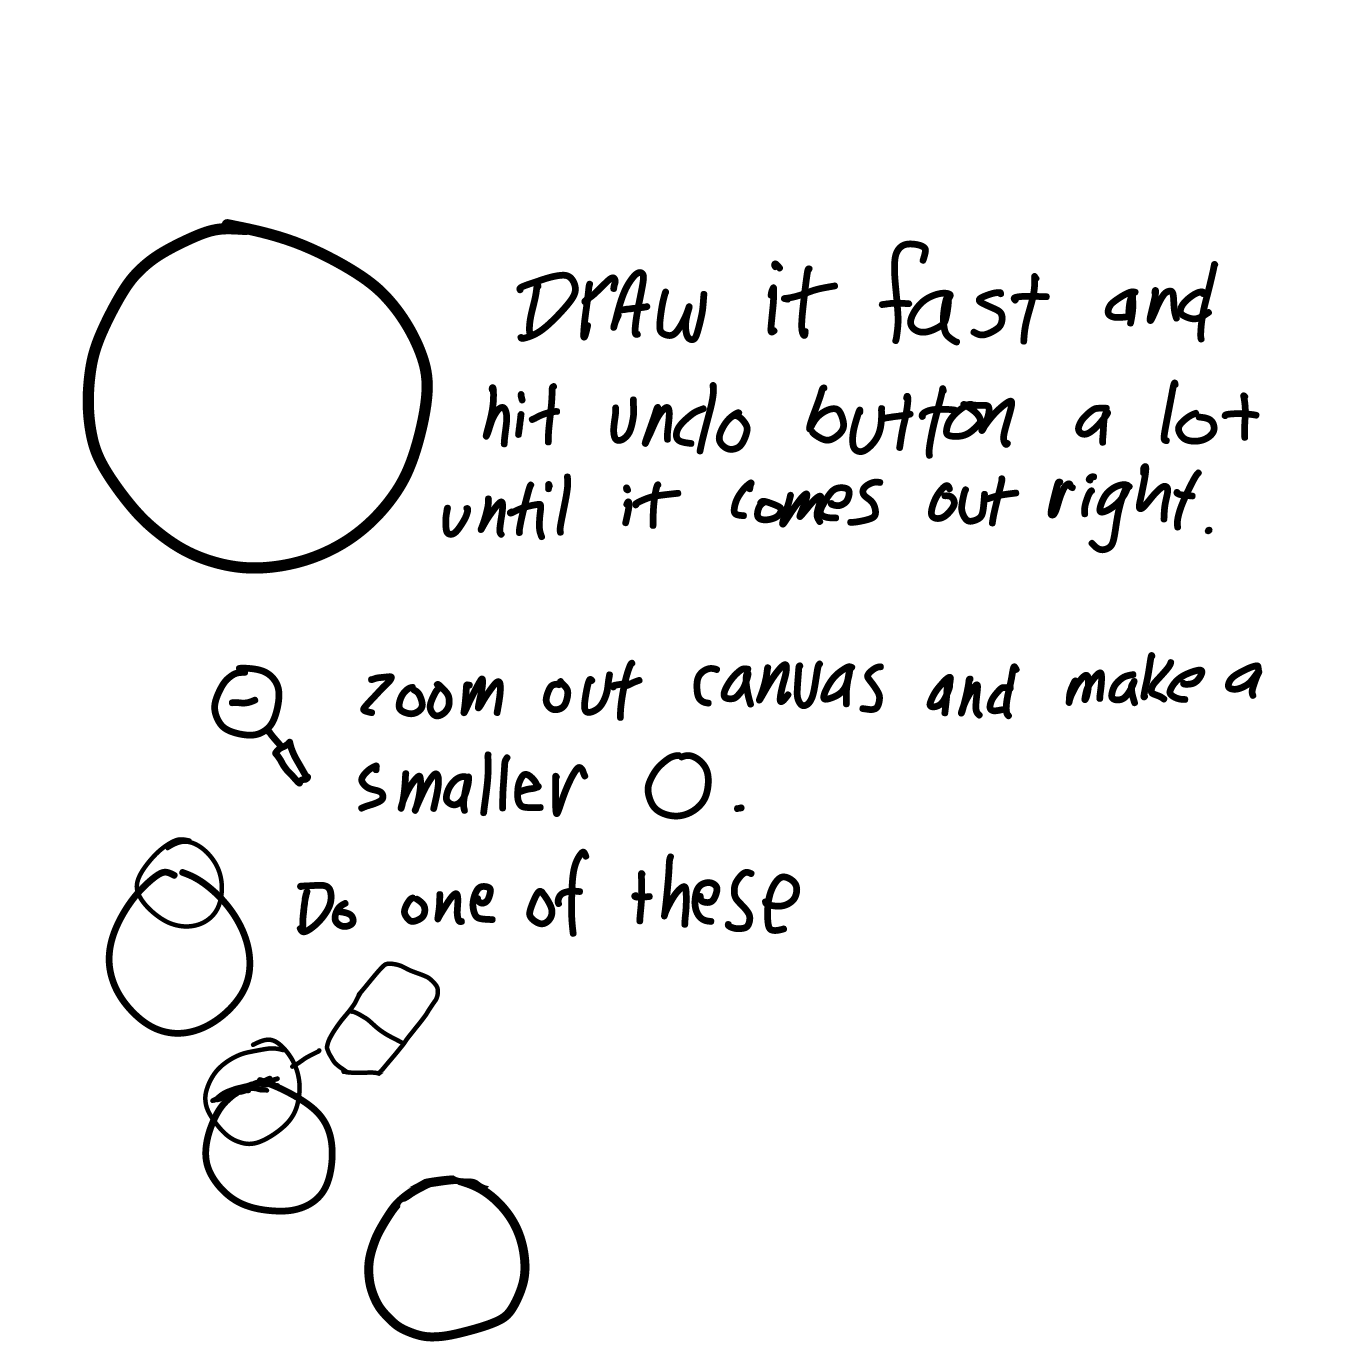 DrAw it fast and
hit undo button a lot
until it comes out right.
zoom out canvas and make a
smaller O.
Do one of these